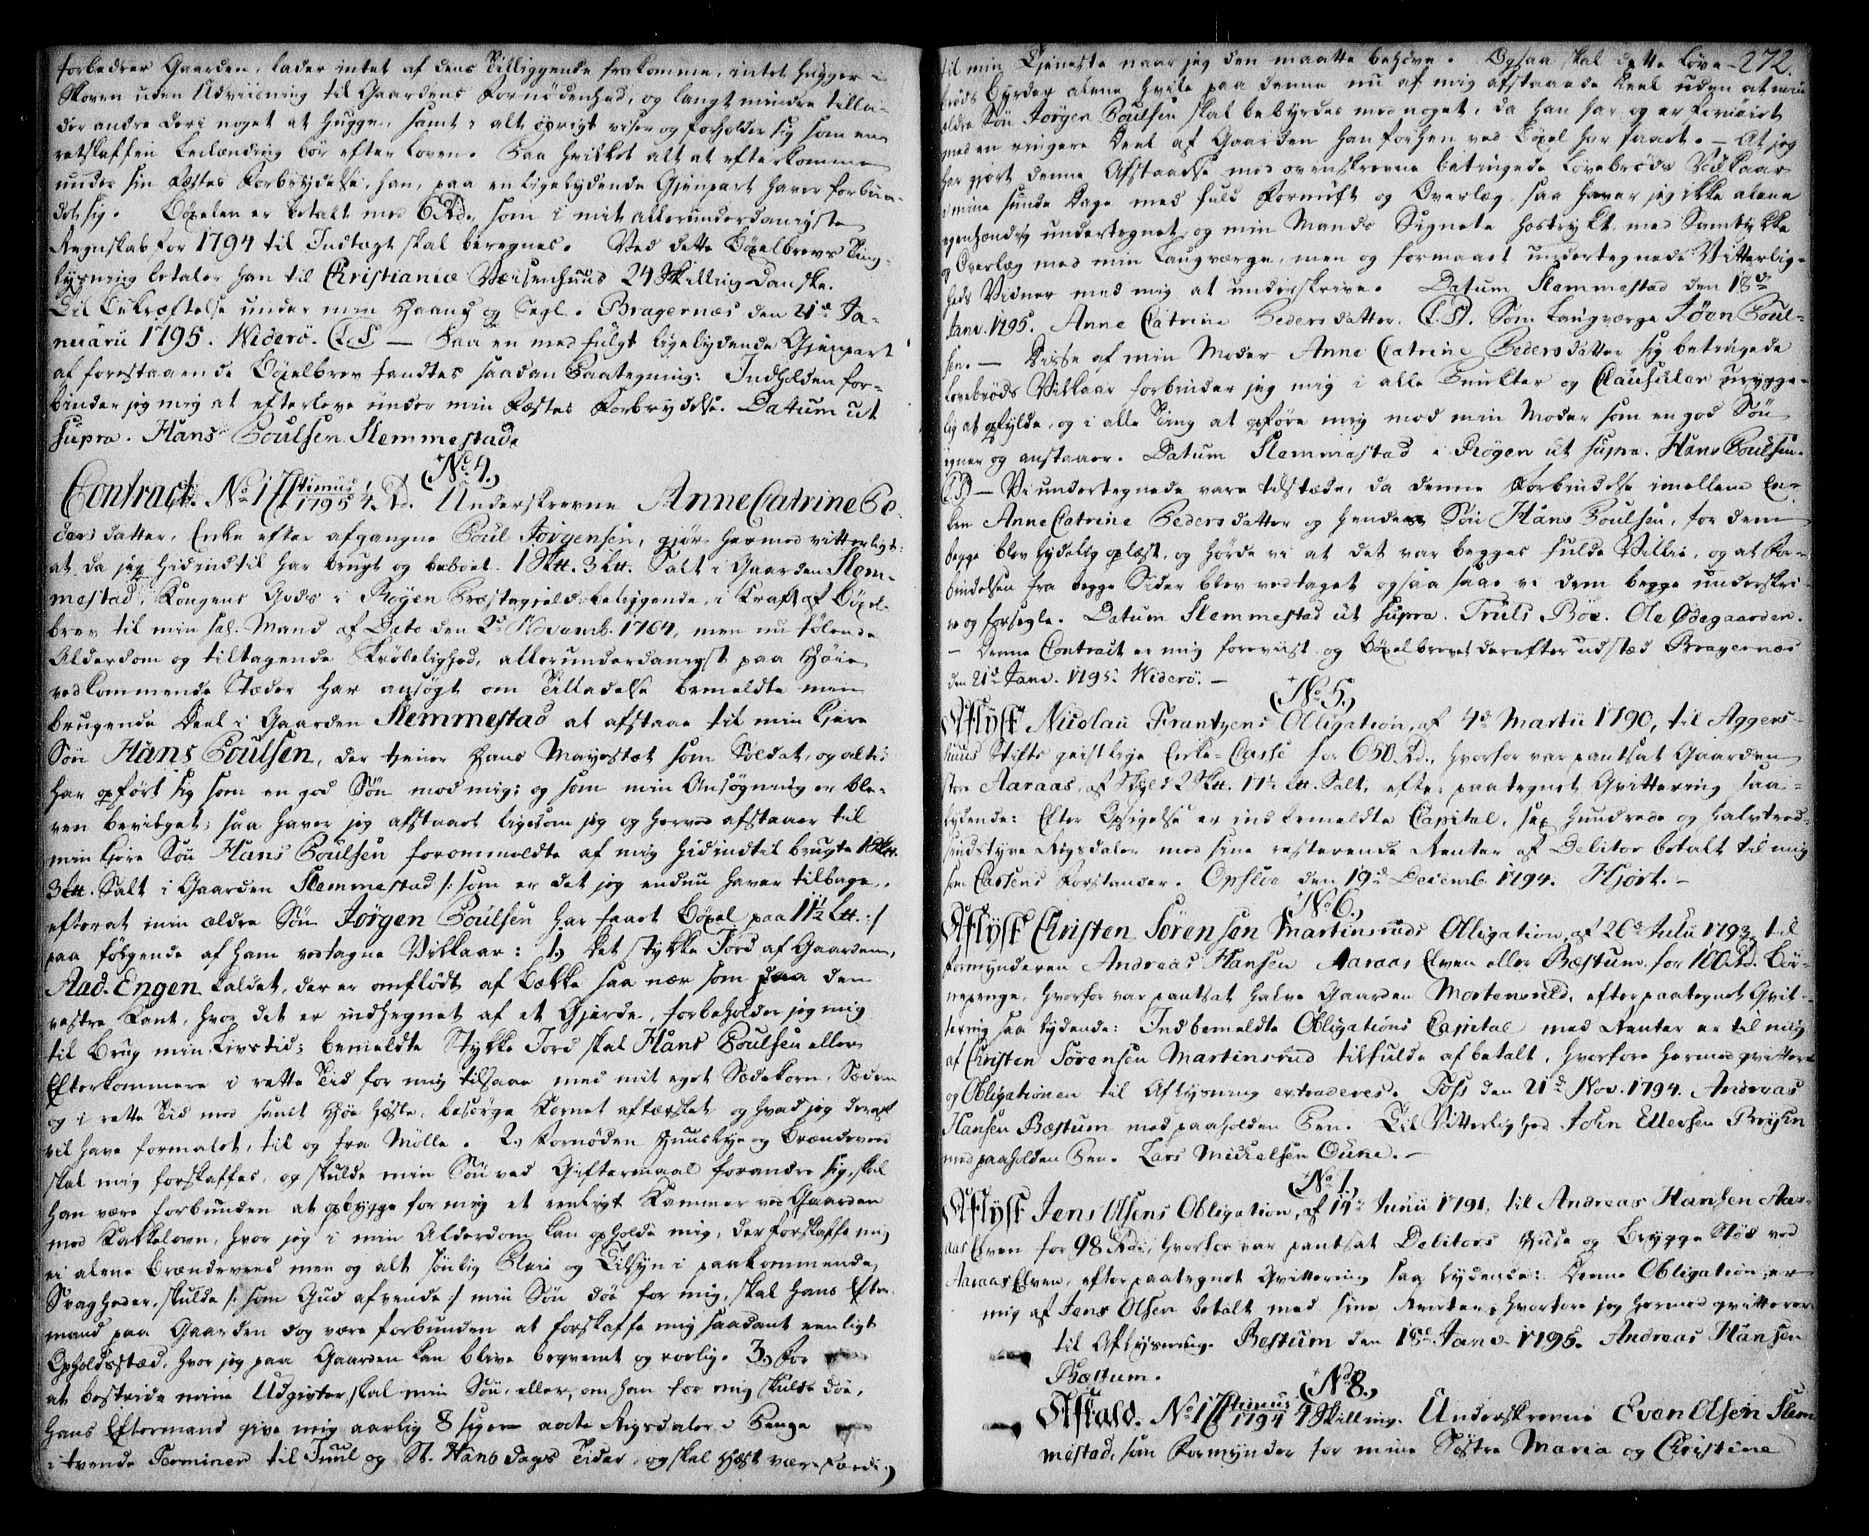 forbedrer Gaarden, lader intet af dens Tilliggende frakomme, intet hugger i
Skoven uden Udviisning til Gaardens Fornødenhed, og langt mindre tilla-
der andre deri noget at hugge, samt i alt øvrigt viser og forholder sig som een
retskaffen Leilænding bør efter Loven. Saa hvilket alt at efterkomme
under sin Fæstes Forbrydelse, han paa en ligelydende Gjenpart haver forbun-
det sig. Böxelen er betalt med 6 Rd., som i mit allerunderdanigste
Regnskab for 1794 til Indtægt skal beregnes. Ved dette Böxelbrevs Ting-
lysning betaler han til Christianiæ Væisenhuus 24 Skilling Danske.
Til Bekræftelse under min Haand og Segl. Bragernæs den 21de Ja-
nuarii 1795. Widerö. (L.S) — Paa en med fulgt ligelydende Gjenpart
af forestaaende Böxelbrev fandtes saadan Paategning: Indholden for-
binder jeg mig at efterleve under min Fæstes Forbrydelse. Datum ut
supra. Hans Poulsen Slemmestad.
(No. 4.)
Contract. No. 17 1795 4 Rd. Underskrevne Anne Catrine Pe-
dersdatter, Enke efter afgangne Poul Jørgensen, gjør hermed vitterligt:
at da jeg hidindtil har brugt og beboet 1 Skt. 3 Lt. Salt i Gaarden Slem-
mestad, Kongens Gods i Røgen Præstegield beliggende, i Kraft af Böxel-
brev til min sal. Mand af Dato den 2d Novemb. 1764, men nu følende
Alderdom og tiltagende Skröbelighed, allerunderdanigst paa Høie
vedkommende Stæder har ansøgt om Tilladelse bemeldte min
brugende Deel i Gaarden Slemmestad at afstaae til min kjere
Sön Hans Poulsen, der tjener Hans Mayestæt som Soldat, og altid
har opført sig som en god Sön mod mig; og som min Ansøgning er ble-
ven bevilget; saa haver jeg afstaaet ligesom jeg og herved afstaaer til
min kjere Sön Hans Poulsen forommeldte af mig hidindtil brugte 1 Skt.
3 Lt. Salt i Gaarden Slemmestad /: som er det jeg endnu haver tilbage,
efterat min ældre Sön Jørgen Poulsen har faaet Böxel paa 11½ Lt. :/
paa følgende af ham vedtagne Vilkaar: 1.) Det stykke Jord af Gaarden,
Aad. Engen kaldet, der er omflödt af Bække saa nær som paa den
vestre Kant, hvor det er indhegnet af et Gjerde, forbeholder jeg mig
til Brug min Livstid; bemeldte Stykke Jord skal Hans Poulsen eller
Efterkommere i rette Tid for mig tilsaae med mit eget Sædekorn, Sæden
og i rette Tid med samt Høe høste, besörge Kornet aftærsket og hvad jeg deraf
vil have formalet, til og fra Mölle. 2.) Fornöden Huuslye og Brændeved
skal mig forskaffes, og skulde min Sön ved Giftermaal forandre sig, skal
han være forbunden at opbygge for mig et venligt Kammer ved Gaarden
med Kakkelovn, hvor jeg i min Alderdom kan opholde mig, der forskaffe mig
ei alene Brændeved men og alt sönlig Pleie og Tilsyn i paakommende
Svagheder, skulde /: som Gud afvende :/ min Sön döe for mig, skal Hans Efter-
mand paa Gaarden dog være forbunden at forskaffe mig saadant venligt
Opholdsstæd, hvor jeg paa Gaarden kan blive beqvemt og roelig. 3.) For
at bestride mine Udgivter, skal min Sön, eller, om han for mig skulde döe,
Hans Eftermand give mig aarlig 8 siger aatte Rigsdaler i Penge
i tvende Terminer til Juul og St. Hans Dags Tider, og skal Hest være færdig
272.
til min Tjeneste naar jeg den maatte behøve. Ogsaa skal dette Löve-
bröds Byrder alene hvile paa denne nu af mig afstaaende Deel uden at min
ældre Sön Jörgen Poulsen skal bebyrdes med noget, da han har og er fornöiet
med en ringere Deel af Gaarden han forhen ved Böxel har faaet. — At jeg
har gjort denne Afstaaelse med ovenskrevne betingede Lövebröds Vilkaar
i mine sunde Dage med fuld Fornuft og Overlæg, saa haver jeg ikke alene
egenhændig undertegnet og min Mands Signete hostrykt med Samtykke
og Overlæg med min Laugværge, men og formaaet undertegnede Vitterlig-
heds Vidner med mig at underskrive. Datum Slemmestad den 18de
Janv. 1795. Anne Catrine Pedersdatter. (L.S). Som Laugværge Jöen Poul-
sen. — Disse af min Moder Anne Catrine Pedersdatter sig betingede
Levebröds Vilkaar forbinder jeg mig i alle Puncter og Clausuler urygge-
lig at opfylde, og i alle Ting at opföre mig mod min Moder som en god Sön
egner og anstaaer. Datum Slemmestad i Røgen ut supra. Hans Poulsen.
(L.S) — Vi undertegnede vare tilstæde, da denne Forbindelse imellem En-
ken Anne Catrine Pedersdatter og hendes Sön Hans Poulsen, for dem
begge blev tydelig oplæst, og hørde vi at det var begges fulde Villie, og at For-
bindelsen fra begge Sider blev vedtaget ogsaa saae vi dem begge underskri-
ve og forsegle. Datum Slemmestad ut supra. Truls Böe. Ole Ødegaarden.
— Denne Contract er mig foreviist og Böxelbrevet derefter udstæd Bragernæs
den 21d Janv. 1795. Widerö. —
(No. 5.)
Aflyst Nicolai Frantzens Obligation, af 4d Martii 1790, til Aggers-
huus Stifts geistlige Enke-Casse for 650 Rd., hvorfor var pantsat Gaarden
store Aaraas, af Skyld 2 Skt. 17½ Lt. Salt, efter paategnet Qvittering saa
lydende: Efter Opsigelse er indbemeldte Capital, sex hundrede og halvtred-
sindstyve Rigsdaler med sine resterende Renter af Debitor betalt til mig
som Cassens Forstander. Opsloe den 19d Decemb. 1794. Hjort. —
(No. 6.)
Aflyst Christen Sörensen Martinsruds Obligation, af 26d Julii 1793, til
Formynderen Andreas Hansen Aaraas Elven eller Bæstum, for 100 Rd. Bör-
nepenge, hvorfor var pantsat halve Gaarden Mortensrud, efter paategnet Qvit-
tering saa lydende: Indbemeldte Obligations Capital med Renter er til mig
af Christen Sörensen Martinsrud tilfulde afbetalt, hvorfore hermed qvitteres
og Obligationen til Aflysning extraderes. Foss den 21d Nov. 1794. Andreas
Hansen Bæstum med paaholden Pen. Til Vitterlighed John Ellevsen
med paaholden Pen. Lars Michelsen. —
(No. 7.)
Aflyst Jens Olsens Obligation, af 14de Junii 1791, til Andreas Hansen Aar-
aas Elven for 98 Rd., hvorfor var pantsat Debitors Huse og Brygge Stöd ved
Aaraas Elven, efter paategnet Qvittering saa lydende: Denne Obligation er
mig af Jens Olsen betalt med sine Renter, hvorfore jeg hermed qvitterer
til Aflysning. Bestum den 18d Janv. 1795. Andreas Hansen
Bæstum.
(No. 8.)
Afkald. No. 17 1794 4 Skilling. Underskrevne Even Olsen Slem-
mestad, som Formynder for mine Söstre Maria og Christine